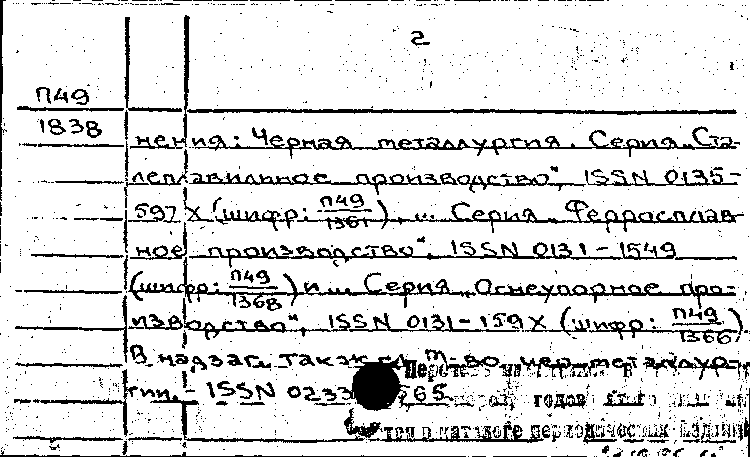 2
П49
1838
нения: Черная металлургия. Серия „Ста-
леплавильное производство", ISSN 0135-
597X (шифр: П49/1361), ... Серия „Ферросплав-
ное производство", ISSN 0131-1549
(шифр: П49/1368) и ... Серия „Огнеупорное про-
изводство", ISSN 0131-159X (шифр: П49/1366).
В надзаг. также: М-во чер. металлур-
гии. - ISSN 0233 765
Перечень в
годов
тен в каталоге периодических изданий